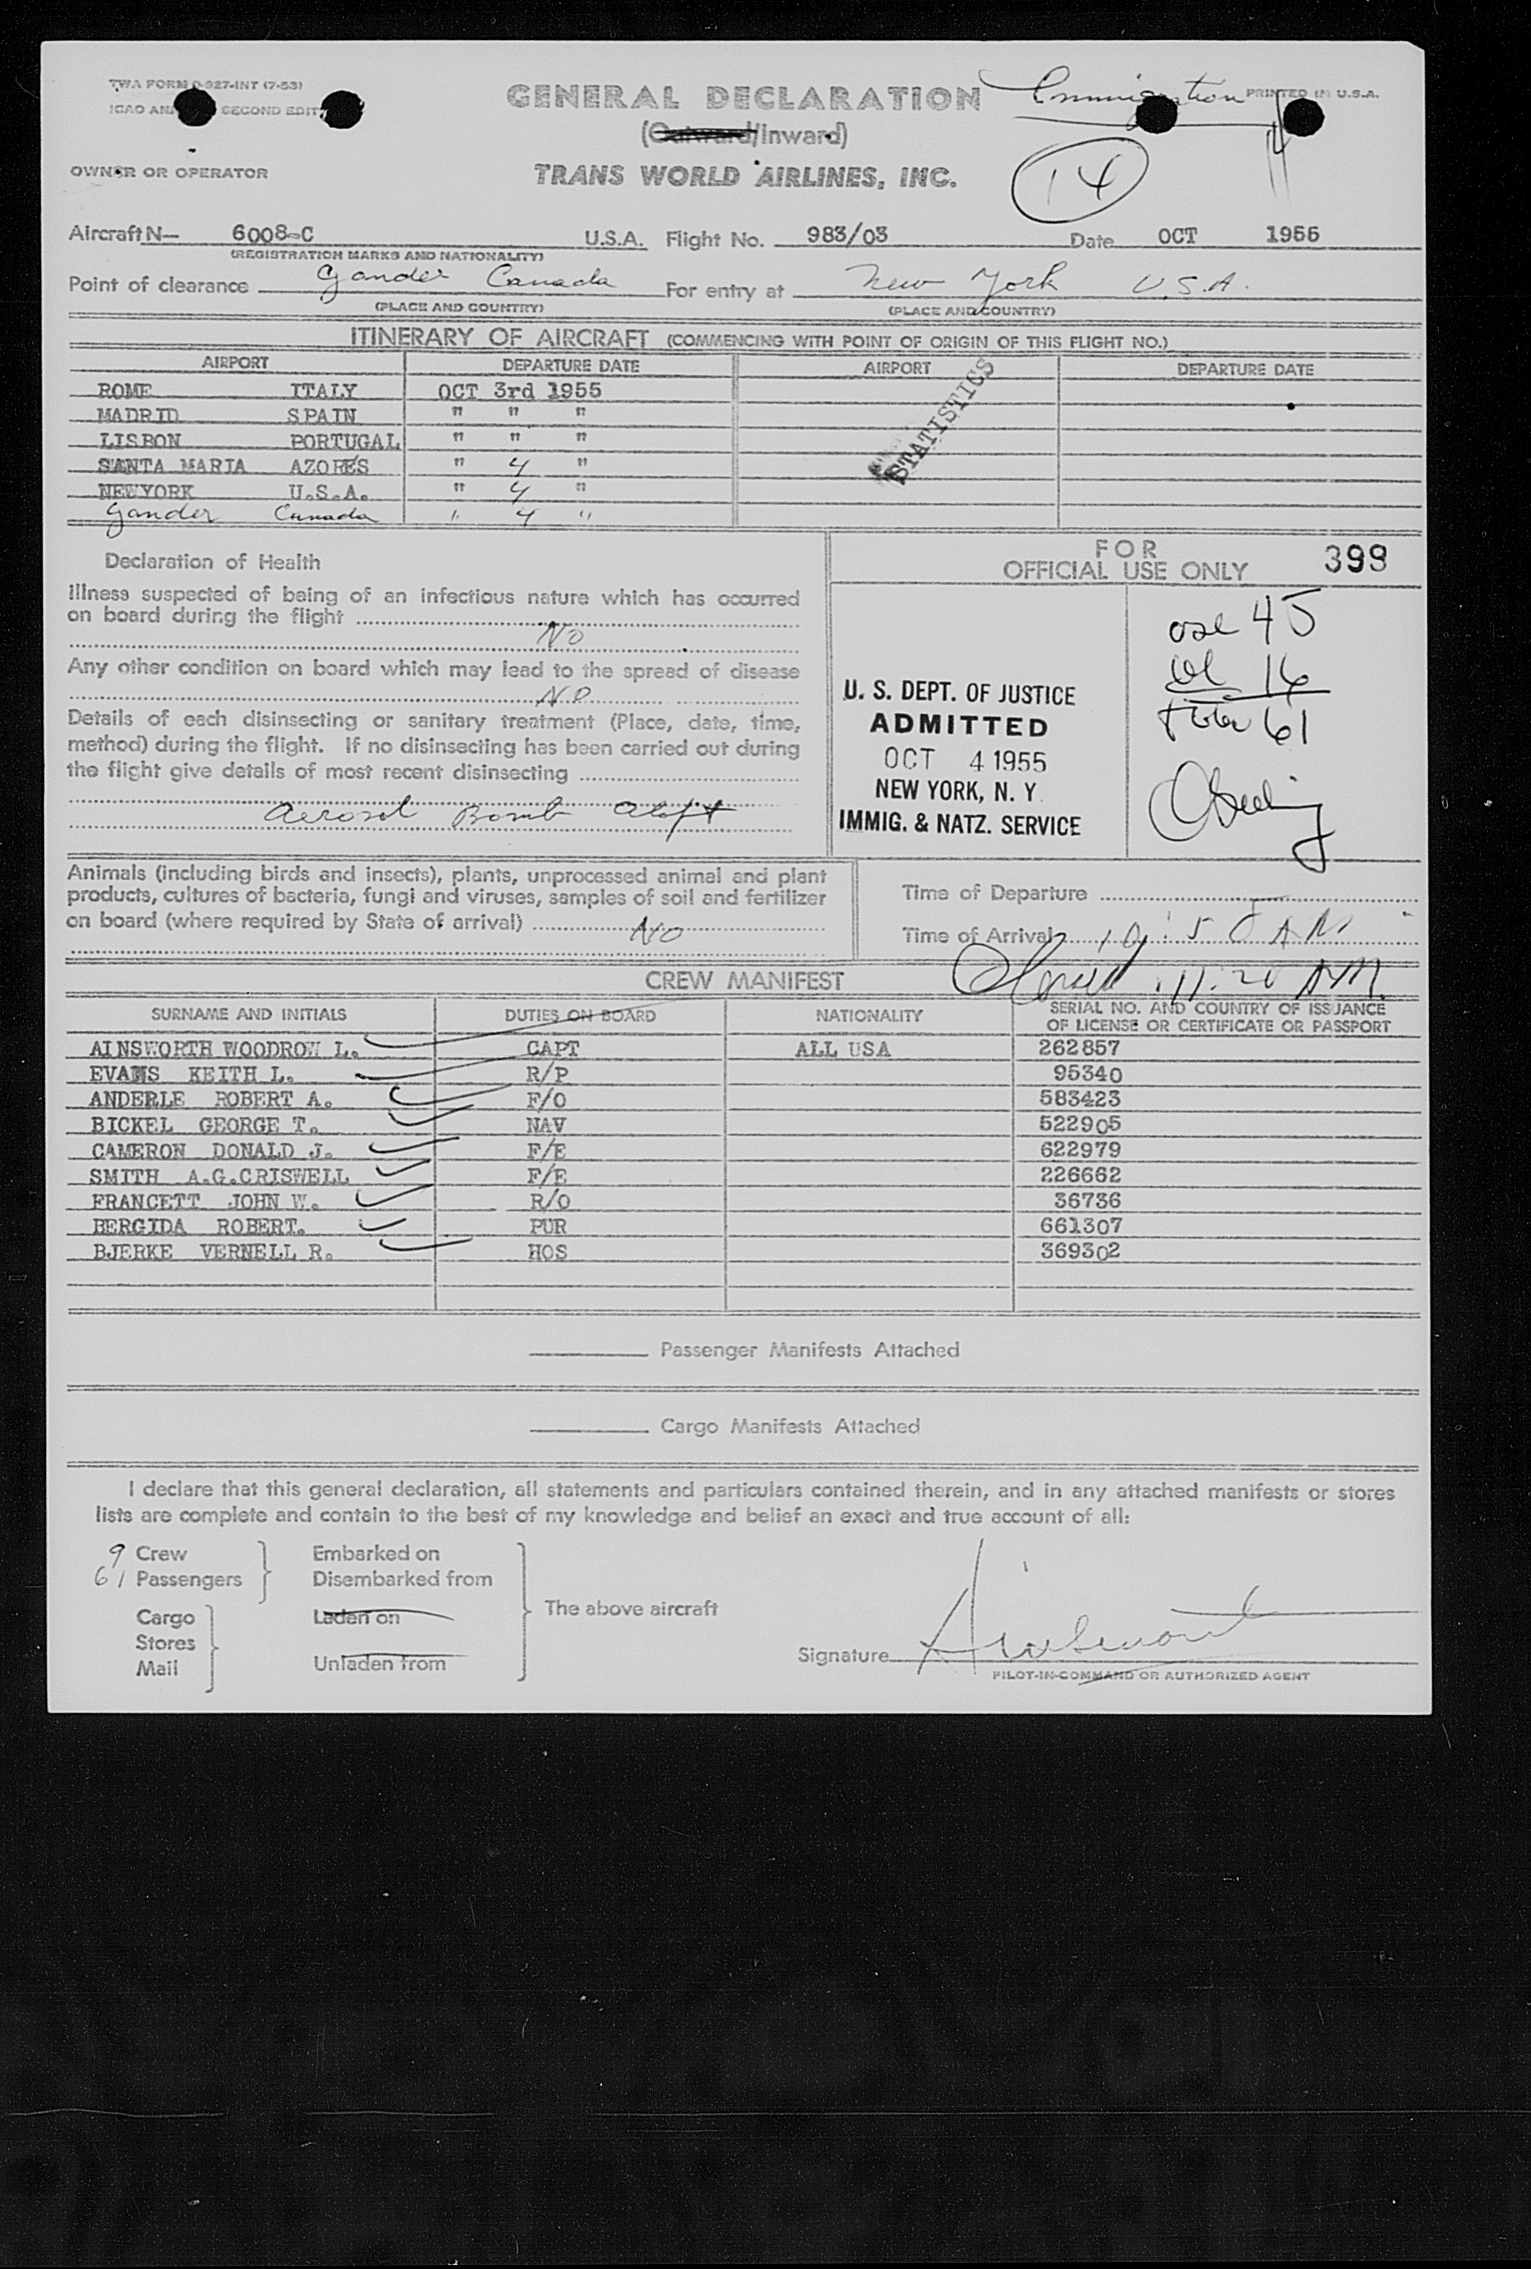 TWA FORM O-927-INT (7-53)
ICAO SECOND
PRINTED IN U.S.A.
GENERAL DECLARATION
Immigration
(Outward/Inward)
14
OWNER OR OPERATOR
TRANS WORLD AIRLINES, INC.
Aircraft N— 6008-C U.S.A. Flight No. 983/03 Date OCT 1955
(REGISTRATION MARKS AND NATIONALITY)
Point of clearance Gander Canada For entry at New York U.S.A.
(PLACE AND COUNTRY) (PLACE AND COUNTRY)
ITINERARY OF AIRCRAFT (COMMENCING WITH POINT OF ORIGIN OF THIS FLIGHT NO.)
AIRPORT DEPARTURE DATE AIRPORT DEPARTURE DATE
STATISTICS
ROME ITALY OCT 3rd 1955
MADRID SPAIN " " "
LISBON PORTUGAL " " "
SANTA MARIA AZORES " 4 "
NEWYORK U.S.A. " 4 "
Gander Canada " 4 "
Declaration of Health
Illness suspected of being of an infectious nature which has occurred
on board during the flight
No
Any other condition on board which may lead to the spread of disease
No
Details of each disinsecting or sanitary treatment (Place, date, time,
method) during the flight. If no disinsecting has been carried out during
the flight give details of most recent disinsecting
Aerosol Bomb Aloft
FOR
OFFICIAL USE ONLY 399
45
16
61
U. S. DEPT. OF JUSTICE
ADMITTED
OCT 4 1955
NEW YORK, N. Y.
IMMIG. & NATZ. SERVICE
Animals (including birds and insects), plants, unprocessed animal and plant
products, cultures of bacteria, fungi and viruses, samples of soil and fertilizer
on board (where required by State of arrival)
No
Time of Departure
Time of Arrival 10:50 AM
11:20 AM
CREW MANIFEST
SURNAME AND INITIALS DUTIES ON BOARD NATIONALITY SERIAL NO. AND COUNTRY OF ISSUANCE
OF LICENSE OR CERTIFICATE OR PASSPORT
AINSWORTH WOODROW L. CAPT ALL USA 262857
EVANS KEITH L. R/P 95340
ANDERLE ROBERT A. F/O 583423
BICKEL GEORGE T. NAV 522905
CAMERON DONALD J. F/E 622979
SMITH A.G.CRISWELL F/E 226662
FRANCETT JOHN W. R/O 36736
BERGIDA ROBERT. PUR 661307
BJERKE VERNELL R. HOS 369302
Passenger Manifests Attached
Cargo Manifests Attached
I declare that this general declaration, all statements and particulars contained therein, and in any attached manifests or stores
lists are complete and contain to the best of my knowledge and belief an exact and true account of all:
9 Crew Embarked on
61 Passengers Disembarked from
The above aircraft
Cargo Laden on
Stores
Mail Unladen from
Signature Ainsworth
PILOT-IN-COMMAND OR AUTHORIZED AGENT